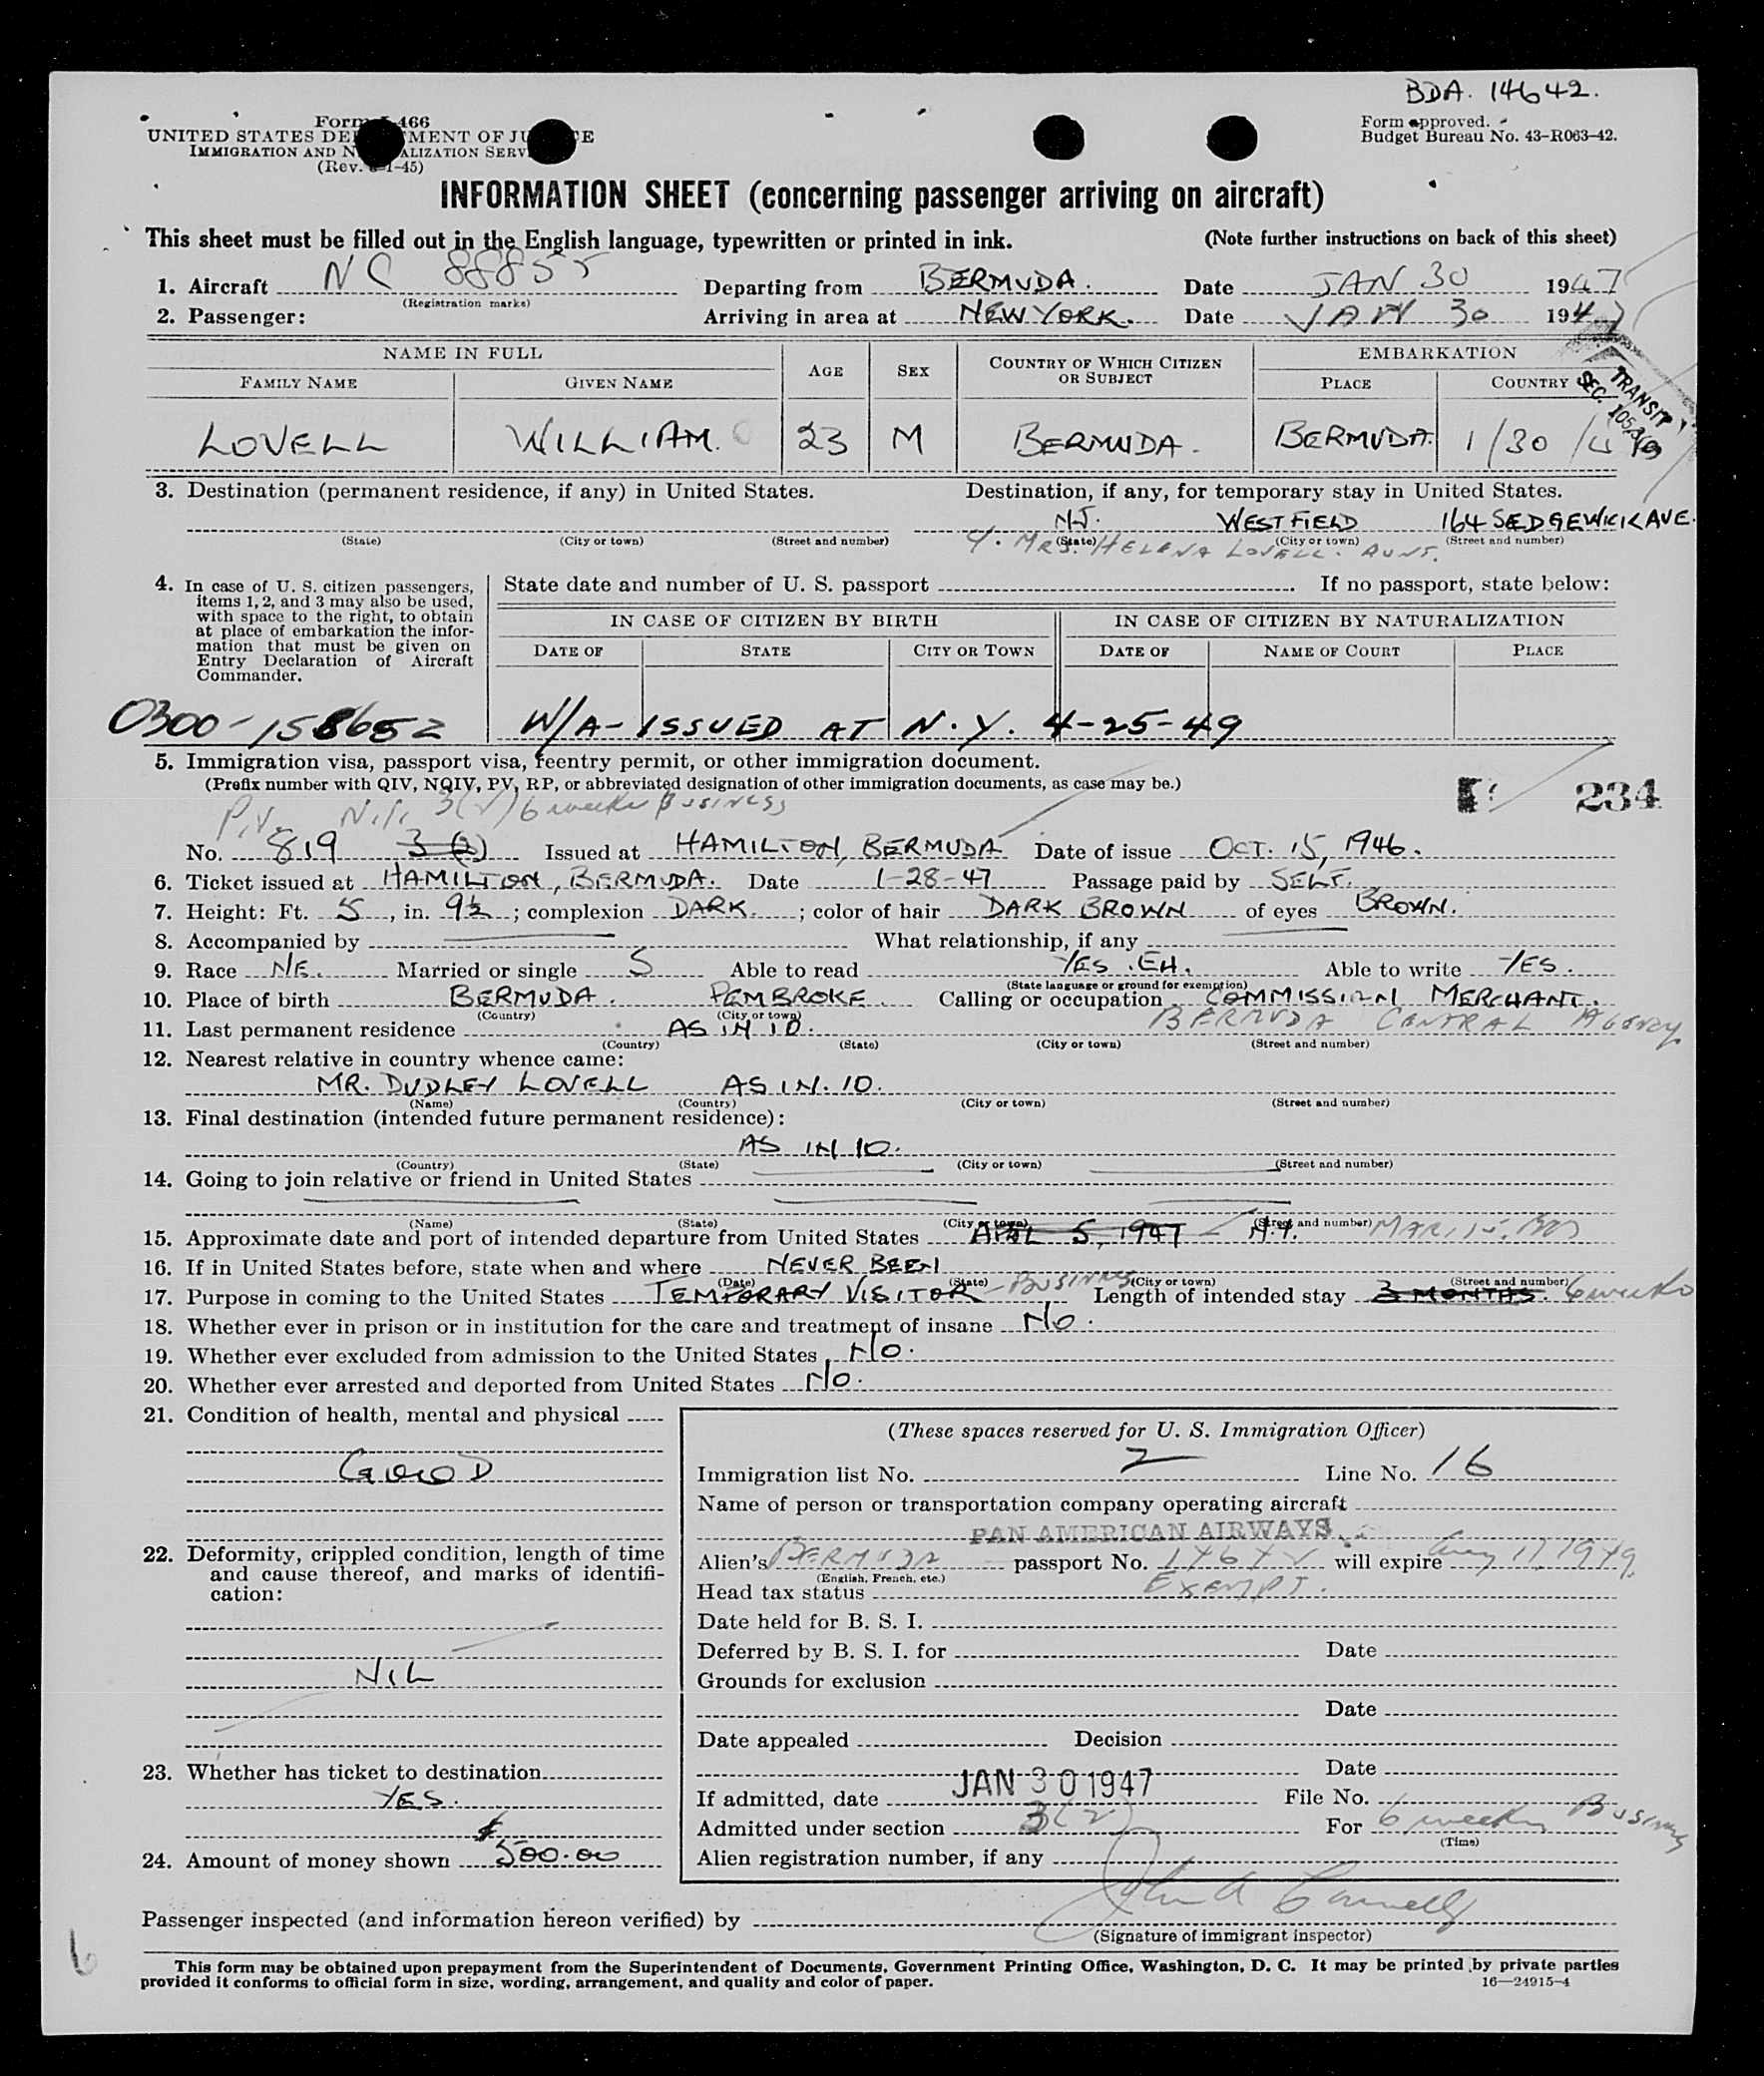 BDA. 14642.
Form I-466
UNITED STATES DEPARTMENT OF JUSTICE
IMMIGRATION AND NATURALIZATION SERVICE
(Rev. 1-45)
Form approved.
Budget Bureau No. 43-R063-42.
INFORMATION SHEET (concerning passenger arriving on aircraft)
This sheet must be filled out in the English language, typewritten or printed in ink. (Note further instructions on back of this sheet)
1. Aircraft NC 88855 Departing from BERMUDA. Date JAN 30 1947
(Registration marks)
2. Passenger: Arriving in area at NEW YORK. Date JAN 30 1947
NAME IN FULL AGE SEX COUNTRY OF WHICH CITIZEN OR SUBJECT EMBARKATION
FAMILY NAME GIVEN NAME PLACE COUNTRY
TRANSIT
SEC. 105.3(
LOVELL WILLIAM. 23 M BERMUDA. BERMUDA. 1/30
3. Destination (permanent residence, if any) in United States. Destination, if any, for temporary stay in United States.
N.J. WESTFIELD 164 SEDGEWICK AVE.
(State) (City or town) (Street and number) (State) (City or town) (Street and number)
MRS. HELENA LOVELL. AUNT.
4. In case of U. S. citizen passengers, items 1, 2, and 3 may also be used, with space to the right, to obtain at place of embarkation the information that must be given on Entry Declaration of Aircraft Commander.
State date and number of U. S. passport If no passport, state below:
IN CASE OF CITIZEN BY BIRTH IN CASE OF CITIZEN BY NATURALIZATION
DATE OF STATE CITY OR TOWN DATE OF NAME OF COURT PLACE
0300-158652 W/A-ISSUED AT N.Y. 4-25-49
5. Immigration visa, passport visa, reentry permit, or other immigration document.
(Prefix number with QIV, NQIV, PV, RP, or abbreviated designation of other immigration documents, as case may be.)
234
P.V. 3(2) 6 weeks BUSINESS
No. 819 3(2) Issued at HAMILTON, BERMUDA Date of issue OCT. 15, 1946.
6. Ticket issued at HAMILTON, BERMUDA. Date 1-28-47 Passage paid by SELF.
7. Height: Ft. 5, in. 9½; complexion DARK.; color of hair DARK BROWN of eyes BROWN.
8. Accompanied by What relationship, if any
9. Race NE. Married or single S Able to read YES. EH. Able to write YES.
(State language or ground for exemption)
10. Place of birth BERMUDA. PEMBROKE. Calling or occupation COMMISSION MERCHANT.
(Country) (City or town)
BERMUDA CENTRAL AGENCY
11. Last permanent residence AS IN 10.
(Country) (State) (City or town) (Street and number)
12. Nearest relative in country whence came:
MR. DUDLEY LOVELL AS IN. 10.
(Name) (Country) (City or town) (Street and number)
13. Final destination (intended future permanent residence):
AS IN 10.
(Country) (State) (City or town) (Street and number)
14. Going to join relative or friend in United States
(Name) (State) (City or town) (Street and number)
15. Approximate date and port of intended departure from United States APRIL 5, 1947 N.Y. MAR
16. If in United States before, state when and where NEVER BEEN
(Date) (State) (City or town) (Street and number)
17. Purpose in coming to the United States TEMPORARY VISITOR - BUSINESS Length of intended stay 3 MONTHS. 6 weeks
18. Whether ever in prison or in institution for the care and treatment of insane No.
19. Whether ever excluded from admission to the United States No.
20. Whether ever arrested and deported from United States No.
21. Condition of health, mental and physical
GOOD
22. Deformity, crippled condition, length of time and cause thereof, and marks of identification:
NIL
23. Whether has ticket to destination
YES.
24. Amount of money shown $ 500.00
(These spaces reserved for U. S. Immigration Officer)
Immigration list No. 2 Line No. 16
Name of person or transportation company operating aircraft
PAN AMERICAN AIRWAYS
Alien's BERMUDA passport No. 14642 will expire Aug 17 1949.
(English, French, etc.)
Head tax status EXEMPT.
Date held for B. S. I.
Deferred by B. S. I. for Date
Grounds for exclusion
Date
Date appealed Decision
Date
If admitted, date JAN 30 1947 File No.
Admitted under section 3(2) For 6 weeks BUSINESS
(Time)
Alien registration number, if any
Passenger inspected (and information hereon verified) by John A
(Signature of immigrant inspector)
6
This form may be obtained upon prepayment from the Superintendent of Documents, Government Printing Office, Washington, D. C. It may be printed by private parties
provided it conforms to official form in size, wording, arrangement, and quality and color of paper. 16—24915-4